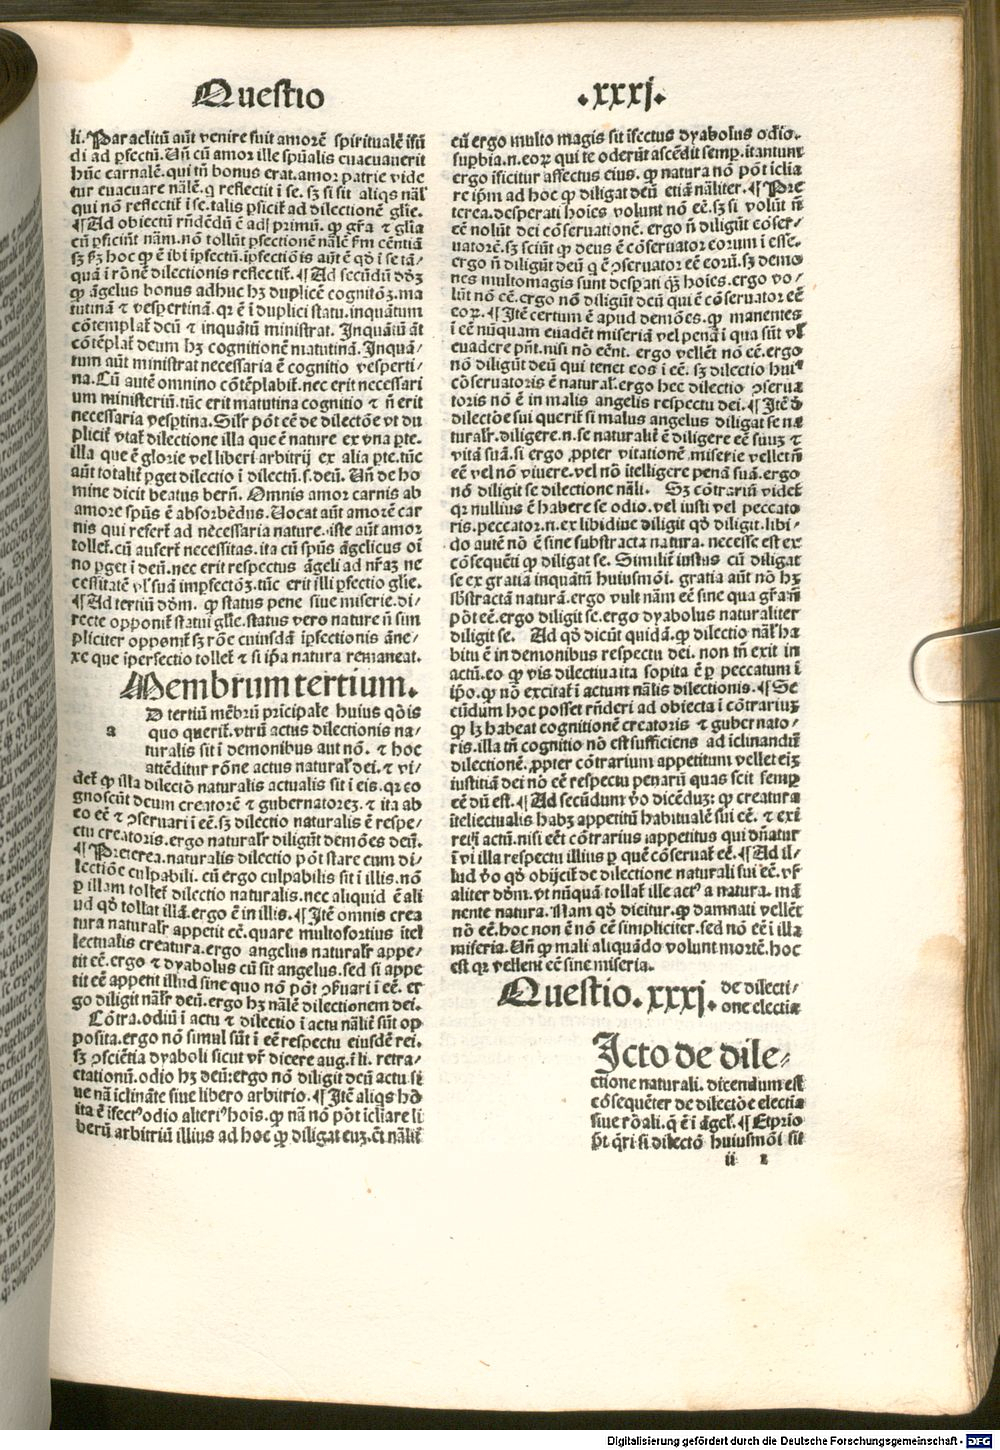 Questio
.xxxj.
li. Paraclitū aūt venire fuit amorē spiritualē īfū
di ad ꝑfectū. Uñ cū amor ille spūalis euacuauerit
hūc carnalē. qui tñ bonus erat. amor patrie vide
tur euacuare nālē. q̄ reflectit ī se. sꝫ si sit aliqs nāl'
qui nō reflectit̄ ī se. talis ꝑficit̄ ad dilectionē gl̄ie.
¶ Ad obiectū rñdēdū ē ad primū. qꝫ gr̄a ⁊ gl̄ia
cū ꝑficiūt nām. nō tollūt ꝑfectionē nālē ẜm cēntiā
sꝫ ẜm hoc qꝫ ē ibi īꝑfectū. īꝑfectiōis aūt ē qđ ī se tā/
quā ī rōnē dilectionis reflectit̄. ¶ Ad secūdū dōꝫ
qꝫ āgelus bonus adhuc hꝫ duplicē cognitōꝫ. ma
tutinā ⁊ vespertinā. qr ē ī duplici statu. inquātum
cōtemplat̄ deū ⁊ inquātū ministrat. Inquātū āt
cōtēplat̄ deum hꝫ cognitionē matutinā. Inquā/
tum aūt ministrat necessaria ē cognitio vesperti/
na. Cū autē omnino cōtēplabit̄. nec erit necessari
um ministeriū. tūc erit matutina cognitio ⁊ ñ erit
necessaria vesꝑtina. Silr pōt eē de dilectōe vt du
plicit̄ vtat̄ dilectione illa que ē nature ex vna ꝑte.
illa que ē glorie vel liberi arbitrij ex alia ꝑte. tūc
aūt totalit̄ ꝑget dilectio ī dilectū. s. deū. Uñ de ho
mine dicit beatus berñ. Omnis amor carnis ab
amore spūs ē absorbēdus. Uocat aūt amorē car
nis qui refert̄ ad necessaria nature. iste aūt amor
tollet̄. cū aufert̄ necessitas. ita cū spūs āgelicus oī
no ꝑget ī deū. nec erit respectus āgeli ad nr̄aꝫ ne
cessitatē vl' suā imꝑfectōꝫ. tūc erit illi ꝑfectio gl̄ie.
¶ Ad tertiū dōm. qꝫ status pene siue miserie. di/
recte opponit̄ statui gl̄ie. status vero nature ñ sim
pliciter opponit̄ sꝫ rōe cuiusdā īꝑfectionis āne/
xe que īperfectio tollet̄ ⁊ si ip̄a natura remaneat.
Membrum tertium.
a
D tertiū mēbrū prīcipale huius qōis
quo querit̄. vtrū actus dilectionis na/
turalis sit ī demonibus aut nō. ⁊ hoc
attēditur rōne actus natural' dei. ⁊ vi/
det̄ qꝫ illa dilectō naturalis actualis sit ī eis. qr eo
gnoscūt deum creatorē ⁊ gubernatoreꝫ. ⁊ ita ab
eo eē ⁊ ꝯseruari ī eē. sꝫ dilectio naturalis ē respe/
ctu creatoris. ergo naturalr diligūt demōes deū.
¶ Preterea. naturalis dilectio pōt stare cum di/
lectiōe culpabili. cū ergo culpabilis sit ī illis. nō
ꝑ illam tollet̄ dilectio naturalis. nec aliquid ē ali
ud qđ tollat illā. ergo ē in illis. ¶ Itē omnis crea
tura naturalr appetit eē. quare multofortius ītel
lectualis creatura. ergo angelus naturalr appe/
tit eē. ergo ⁊ dyabolus cū sit angelus. sed si appe
tit eē appetit illud sine quo nō pōt ꝯseruari ī eē. er
go diligit nālr deū. ergo hꝫ nālē dilectionem dei.
Cōtra. odiū ī actu ⁊ dilectio ī actu nālit̄ sūt op
posita. ergo nō simul sūt ī eē respectu eiusdē rei.
sꝫ ꝯsciētia dyaboli sicut vr̄ dicere aug. ī li. retra/
ctationū. odio hꝫ deū: ergo nō diligit deū actu si
ue nā īclināte siue libero arbitrio. ¶ Itē aliqs hō
ita ē īfect' odio alteri' hois. qꝫ nā nō pōt īcliare li
berū arbitriū illius ad hoc qꝫ diligat euꝫ. ēt nālit̄
cū ergo multo magis sit īfectus dyabolus odio.
suꝑbia. n. eoꝝ qui te oderūt ascēdit semꝑ. itantum
ergo īficitur affectus eius. qꝫ natura nō pōt īclia
re ip̄m ad hoc qꝫ diligat deū etiā nāliter. ¶ Pre
terea. desperati hoies volunt nō eē. sꝫ si volūt ñ
eē nolūt dei cōseruationē. ergo ñ diligūt cōser/
uatorē. sꝫ sciūt qꝫ deus ē cōseruator eorum ī esse.
ergo ñ diligūt deū q̄ ē ꝯseruator eē eorū. sꝫ demo
nes multomagis sunt desꝑati qꝫ hoies. ergo vo/
lūt nō eē. ergo nō diligūt deū qui ē cōseruator eē
eoꝝ. ¶ Itē certum ē apud demōes. qꝫ manentes
ī eē nūquam euadēt miseriā vel penā ī qua sūt vl'
euadere pñt. nisi nō eēnt. ergo vellēt nō eē. ergo
nō diligūt deū qui tenet eos ī eē. sꝫ dilectio hui'
cōseruatoris ē natural'. ergo hec dilectio ꝯserua
toris nō ē in malis angelis respectu dei. ¶ Itē d̄
dilectōe sui querit̄ si malus angelus diligat se na
turalr. diligere. n. se naturalit̄ ē diligere eē suuꝫ ⁊
vitā suā. si ergo ꝓpter vitationē miserie vellet ñ
eē vel nō viuere. vel nō ītelligere penā suā. ergo
nō diligit se dilectione nāli. Sꝫ cōtrariū videt̄
qr nullius ē habere se odio. vel iusti vel peccato
ris. peccator. n. ex libidine diligit qđ diligit. libi/
do autē nō ē sine substracta natura. necesse est ex
cōsequēti qꝫ diligat se. Similit̄ iustus cū diligat
se ex gratia inquātū huiusmōi. gratia aūt nō hꝫ
s̄bstractā naturā. ergo vult nām eē sine qua gr̄a ñ
pōt eē. ergo diligit se. ergo dyabolus naturaliter
diligit se. Ad qđ dicūt quidā. qꝫ dilectio nāl' ha
bitu ē in demonibus respectu dei. non tñ exit in
actū. eo qꝫ vis dilectiua ita sopita ē ꝑ peccatum ī
ip̄o. qꝫ nō excitat̄ ī actum nālis dilectionis. ¶ Se
cūdum hoc posset rñderi ad obiecta ī cōtrariuꝫ
qꝫ lꝫ habeat cognitionē creatoris ⁊ gubernato/
ris. illa tñ cognitio nō est sufficiens ad īclinandū
dilectionē. ꝓpter cōtrarium appetitum vellet eiꝫ
iustitiā dei nō eē respectu penarū quas scit semꝑ
eē dū est. ¶ Ad secūdum v̄o dicēduꝫ: qꝫ creatura
īteliectualis habꝫ appetitū habitualē sui eē. ⁊ exi
ret ī actū. nisi eēt cōtrarius appetitus qui dñatur
ī vi illa respectu illius ꝑ quē cōseruat̄ eē. ¶ Ad il/
lud v̄o qđ obijcit̄ de dilectione naturali sui eē. vr̄
aliter dōm. vt nūquā tollat̄ ille act' a natura. ma
nente natura. Nam qđ dicitur. qꝫ damnati vellēt
nō eē. hoc non ē nō eē simpliciter. sed nō eē ī illa
miseria. Uñ qꝫ mali aliquādo volunt mortē. hoc
est qr vellent eē sine miseria.
Questio. xxxj. de dilecti/
one electiua
Icto de dile/
ctione naturali. dicendum est
cōsequēter de dilectōe electiua
siue rōali. q̄ ē ī āgel'. ¶ Et prīo
pt q̄ri. si dilectō huiusmōi sit
ii 2
Digitalisierung gefördert durch die Deutsche Forschungsgemeinschaft - DFG